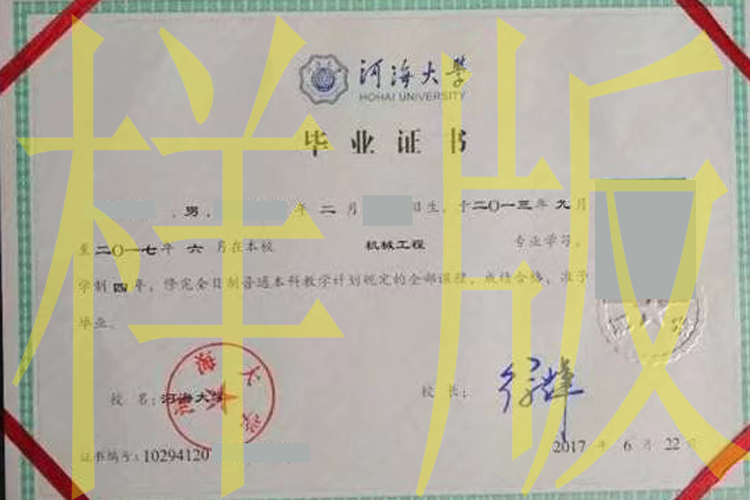 河海大學
HOHAI UNIVERSITY
毕业证书
，男， 年 二 月 日生，于二〇一三年 九 月
至二〇一七年 六 月在本校 机械工程 专业学习，
学制 四 年，修完全日制普通本科教学计划规定的全部课程，成绩合格，准予
毕业。
校 名：河海大学 校 长：
证书编号：10294120 2017 年 6 月 22 日
样版